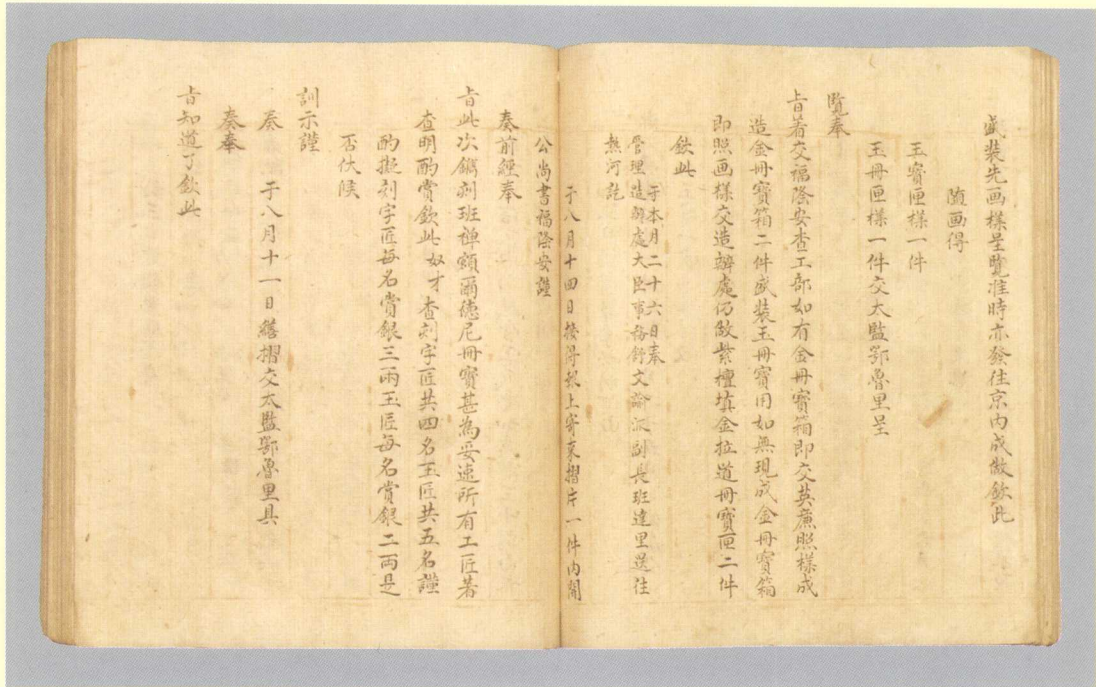 盛装先画様呈覽准時亦發往京内成做欽此
随画得
玉寳匣様一件
玉冊匣様一件交太監鄂魯里呈
覽奉
旨着交福隆安查工部如有金冊寳箱即交英廉照様成
造金冊寳箱二件盛装玉冊寳用如無現成金冊寳箱
即照画様交造辦處仍做紫檀填金拉道冊寳匣二件
欽此
于本月二十六日奉
管理造辦處大臣事務舒文諭派副長班達里送往
熱河訖
于八月十四日接得報上寄來摺片一件内開
公尚書福隆安謹
奏前經奉
旨此次鐫刻班禅額爾德尼冊寳甚為妥速所有工匠著
查明酌賞欽此奴才查刻字匠共四名玉匠共五名謹
酌擬刻字匠每名賞銀三两玉匠每名賞銀二两是
否伏候
訓示謹
奏 于八月十一日繕摺交太監鄂魯里具
奏奉
旨知道了欽此